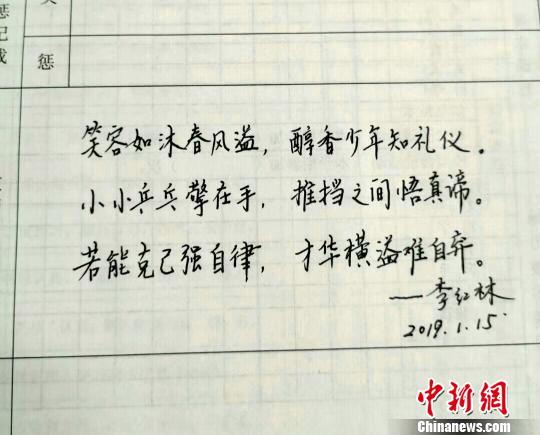 惩记载
奖
惩
笑容如沐春风溢，醇香少年知礼仪．
小小乒乓擎在手，推挡之间悟真谛。
若能克己强自律，才华横溢难自弃。
——李红林
2019.1.15
中新网
Chinanews.com